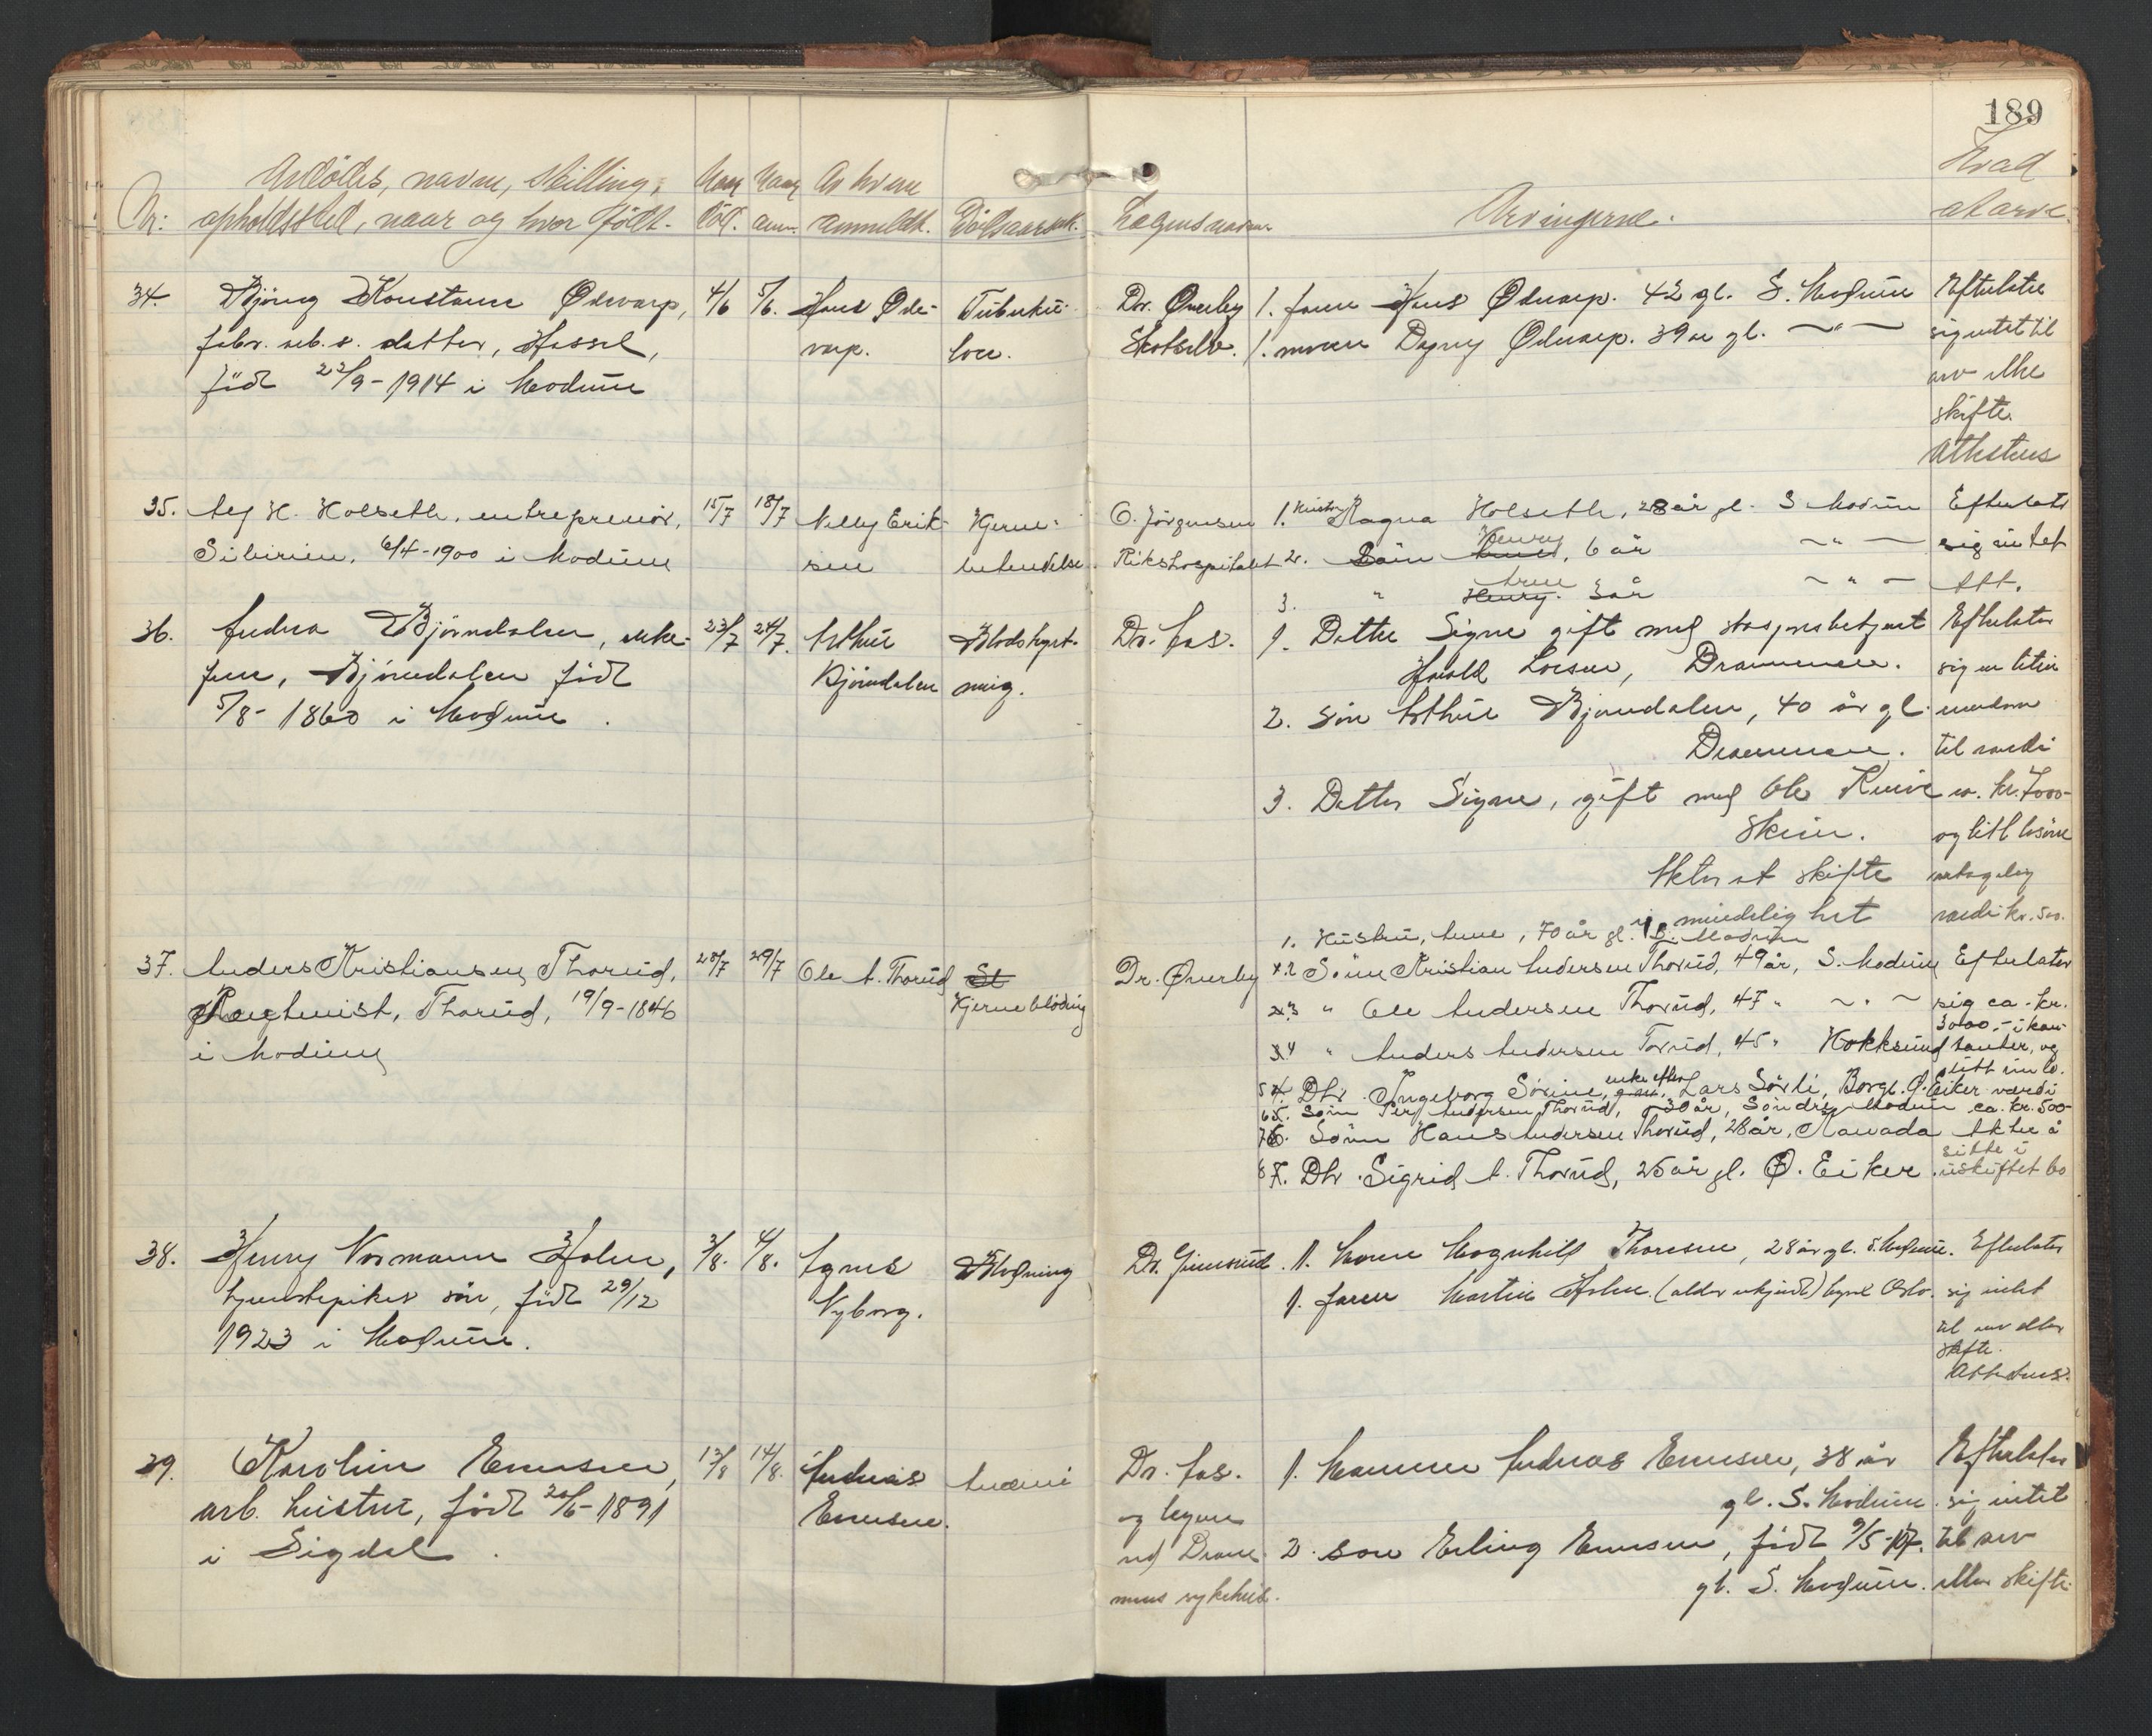 189
Avdödes, navn, stilling,
Nr: opholdssted, naar og hvor födt.
Naar död.
Naar anm.
Av hvem anmeldt.
Dödsaarsak.
Lægens navn.
Arvingerne.
Hvad at arve.
34. Bjöng Konstanse Ödevarp,
fabr. arb.s. datter, Hassel,
föd 22/9-1914 i Modum
4/6
5/6.
Hans Öde-
varp.
Tuberku-
lose.
Dr. Överby
Skotselv.
1. faren Hans Ödevarp. 42 gl. S. Modum
1. moren Dagny Ödevarp. 39 år gl. — " —
Efterlater
sig intet til
arv eller
skifte.
Attesteres
35. Aag H. Holseth, entreprenör,
Sibirien. 6/4-1900 i Modum
15/7
18/7
Nelly Erik-
sen
Hjerne-
betendelse
O. Jörgensen
Rikshospitalet
1. Hustru Ragna Holseth, 28 år gl. S Modum
2. Sönn Henry, 6 år — " —
3. " Arne Henry. 3 år — " —
Efterlater
sig intet
Att.
36. Andrea Björndalen, enke-
frue, Björndalen föd
5/8-1860 i Modum.
23/7
24/7.
Arthur
Björndalen
Blodstyrt-
ning.
Dr. Aas.
1. Datter Signe gift med stasjonsbetjent
Harald Larsen, Drammen.
2. Sön Arthur Björndalen, 40 år gl.
Drammen.
3. Datter Signe, gift med Ole Ruud
Skien.
Akter at skifte
i mindelighet
Efterlater
sig en liten
eiendom
til verdi
ca. kr. 7000-
og litt lösöre
antagelig
verdi kr. 500.
37. Anders Kristiansen Thorud,
Thorud, 19/9-1846
i Modum
28/7
29/7
Ole A. Thorud
St
Hjerneblödning
Dr. Överby
1. Hustru, Anne, 70 år gl. S. Modum
2 Sönn Kristian Andersen Thorud, 49 år, S. Modum
3 " Ole Andersen Thorud, 47 " — " —
4 " Anders Andersen Torud, 45 " Hokksund
5. Dtr. Ingeborg Sörine, enke efter Lars Sörli, Borgl. Ö. Eiker
6. Sönn Per Andersen Thorud, 30 år, Söndre Modum
7. Sönn Hans Andersen Thorud, 28 år, Kanada
8. Dtr. Sigrid A. Thorud, 25 år gl. Ö. Eiker.
Efterlater
sig ca. kr.
3000,- i kon-
tanter, og
litt innbo.
verdi
ca. kr. 500-
Akter å
sitte i
uskiftet bo
38. Henry Normann Holm,
tjenestepikes sön, föd 29/12
1923 i Modum.
3/8.
4/8.
Agnes
Nyborg.
Blödning
Dr. Gjensrud.
1. Moren Magnhild Thoresen, 28 år gl. S. Modum.
1. faren Martin Holm (alder ukjendt) bopæl Oslo.
Efterlater
sig intet
til arv eller
skifte.
Attesteres.
39. Karoline Evensen,
arb. hustru, föd 20/6-1891
i Sigdal.
13/8
14/8.
Andreas
Evensen.
Anæmi
Dr. Aas.
og legene
ved Dram-
mens sykehus.
1. Mannen Andreas Evensen, 38 år
gl. S. Modum.
2. sön Erling Evensen, föd 9/5-17.
gl. S. Modum.
Efterlater
sig intet
til arv
eller skifte.